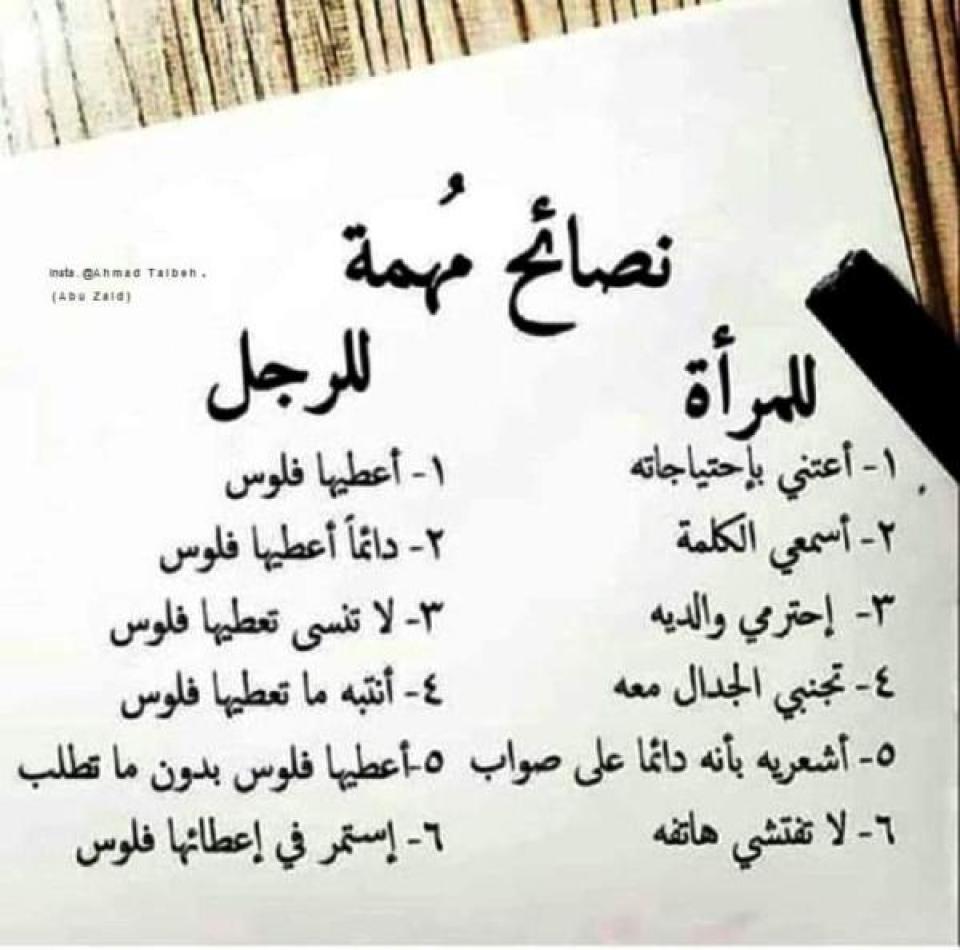 نصائح مُهمة
Insta. @Ahmad Talbeh.
(Abu Zaid)
للمرأة
١- أعتني بإحتياجاته
٢- أسمعي الكلمة
٣- إحترمي والديه
٤- تجنبي الجدال معه
٥- أشعريه بأنه دائما على صواب
٦- لا تفتشي هاتفه
للرجل
١- أعطيها فلوس
٢- دائماً أعطيها فلوس
٣- لا تنسى تعطيها فلوس
٤- أنتبه ما تعطيها فلوس
٥-أعطيها فلوس بدون ما تطلب
٦- إستمر في إعطائها فلوس